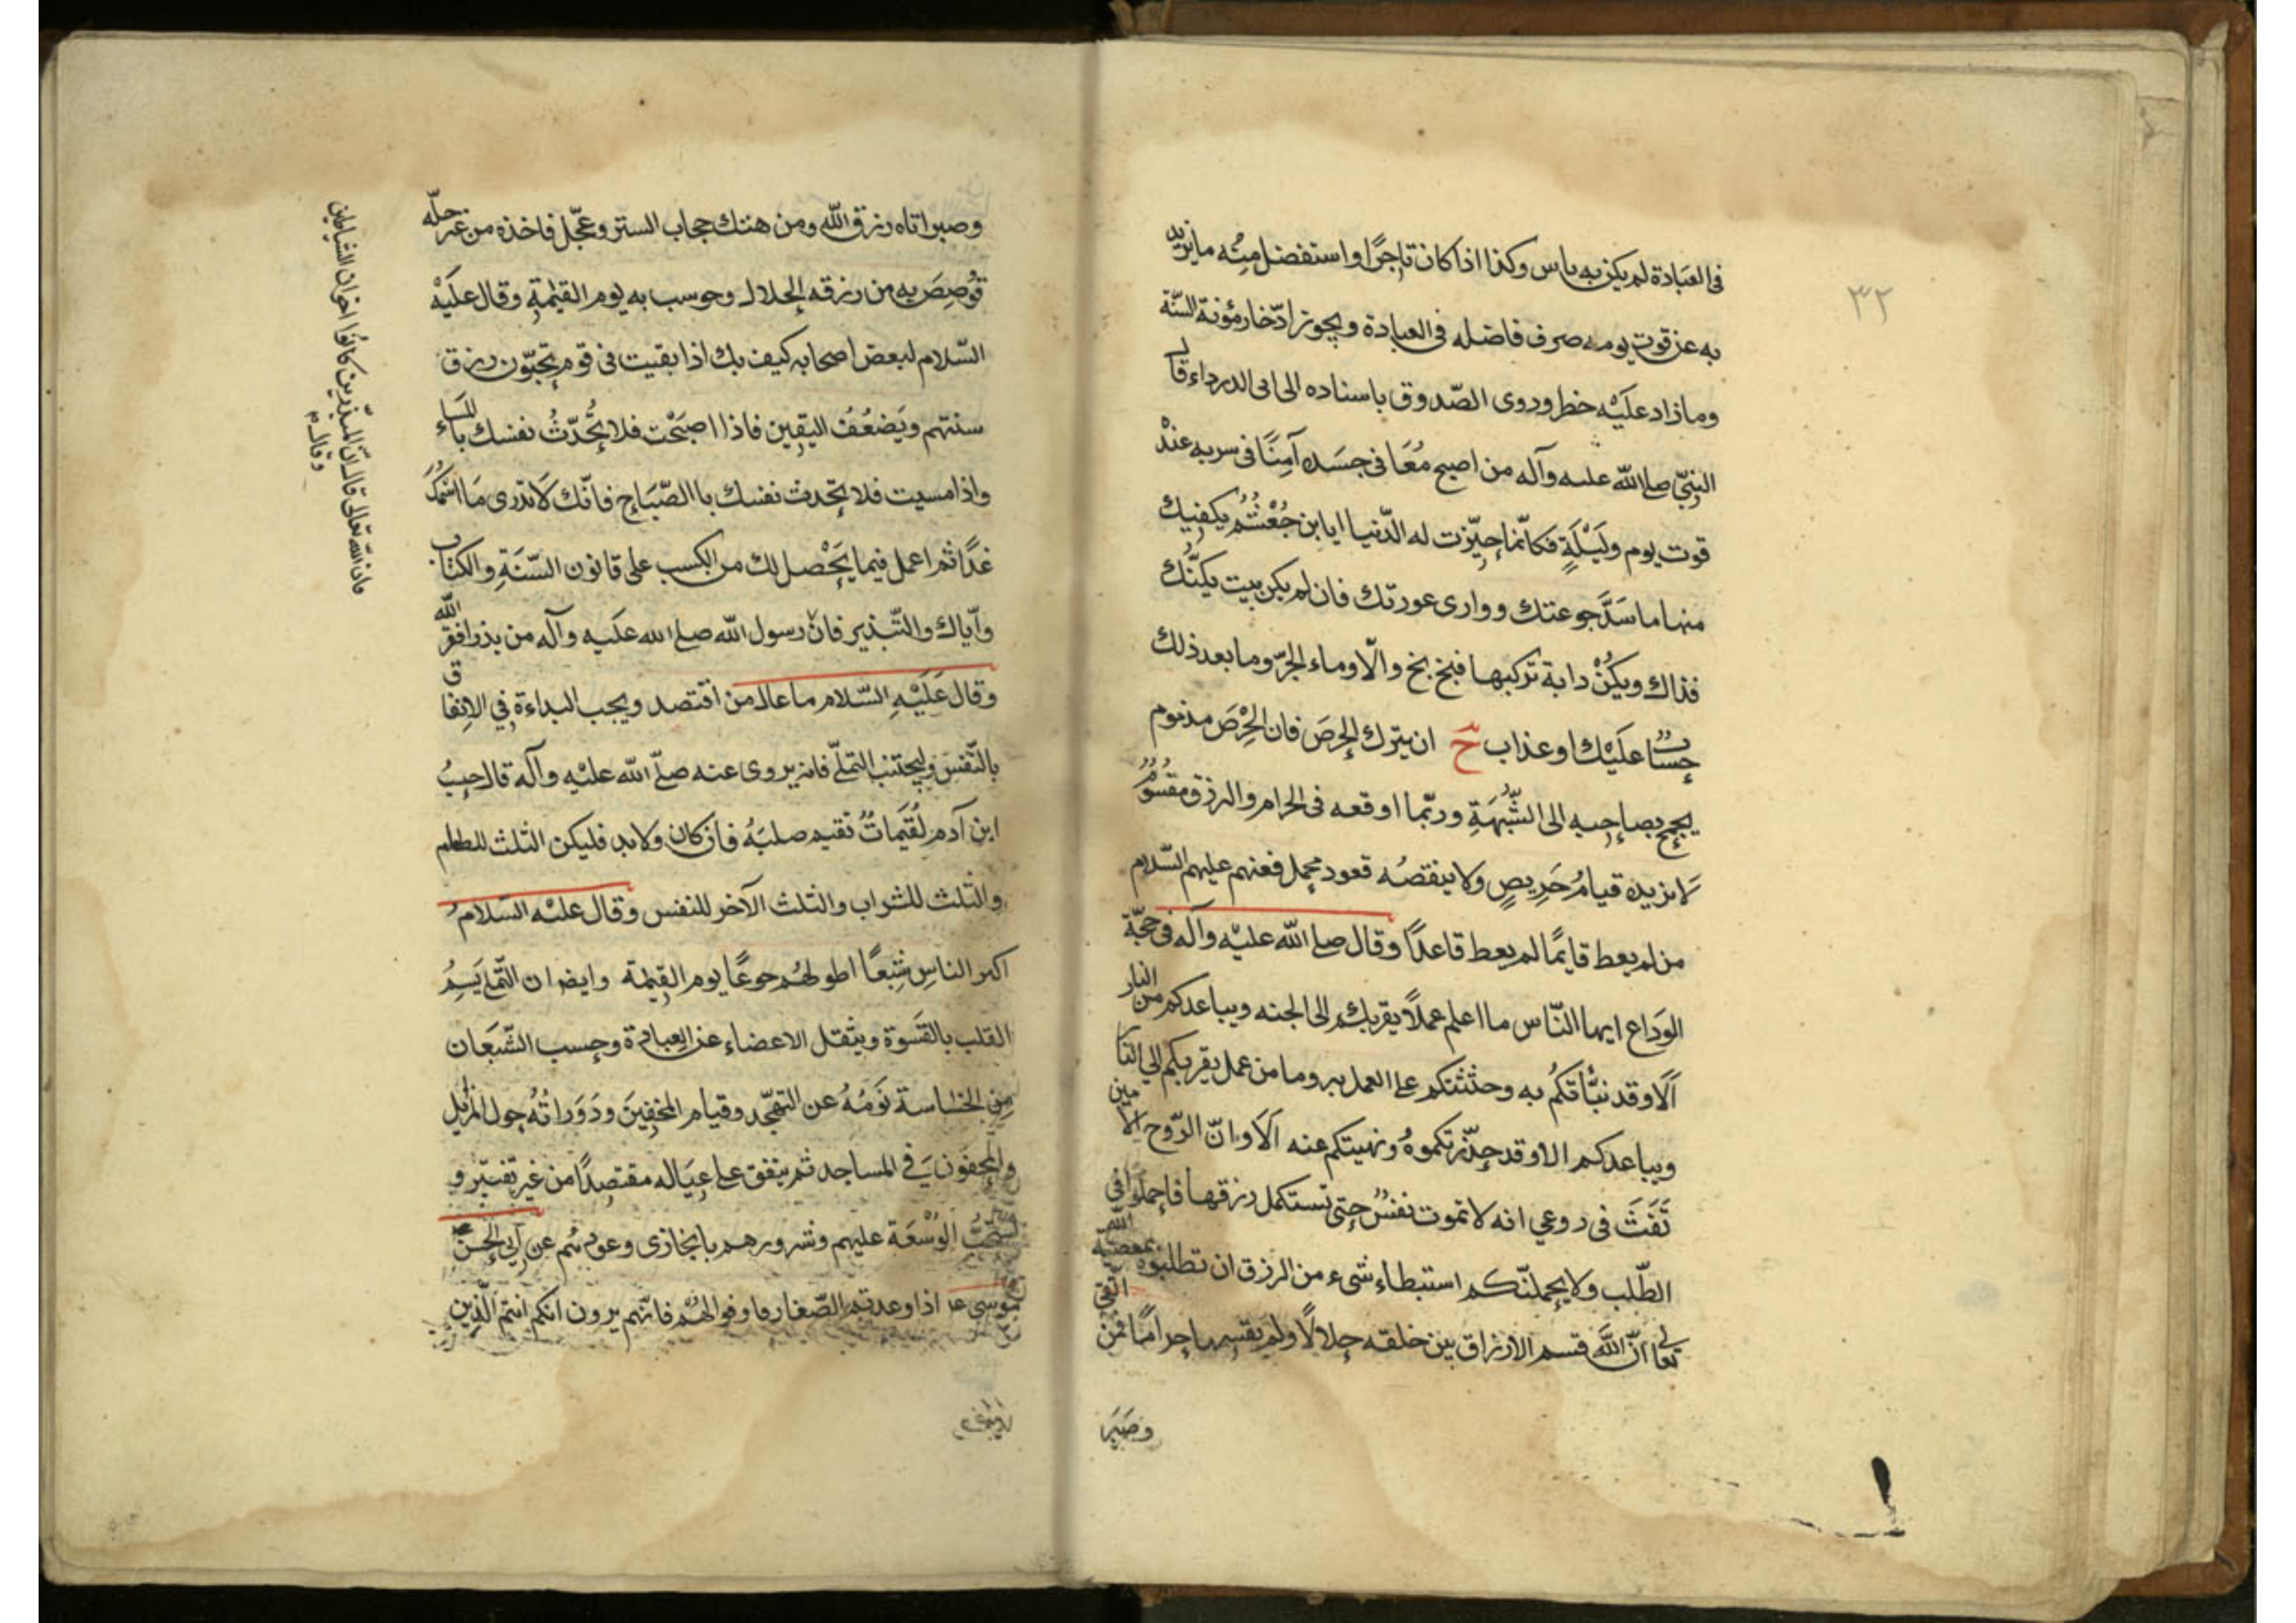 ٣٢
فى العبَادة لم يكن به باس وكذا اذا كان تاجرًا واستفضل منه ما يزيد
به عن قوت يومه صرف فاضله فى العبادة ويجوز ادّخار مؤنة السّنة
وما زاد عليْه خطر وروى الصّدوق باسناده الى ابى الدرداء قال
النبىّ صلى اللّه عليه وآله من اصبح مُعَافى جسَده آمِنًا فى سربه عندْه
قوت يوم ولَيْلَةٍ فكانّما حيّزت له الدّنيا يابن جُعْثُم يكفيك
منها ما سَدَّ جوعتك ووارى عورتك فان لم يكن بيت يكنّك
فذاك ويكُنْ دابة تركبها فبخ بخ والّا وماء الجرّ وما بعد ذلك
حِسَاب عليْك او عذاب حَ ان يترك الحِرصَ فان الحِرْصَ مذموم
يجمح بصاحبه الى الشّبْهَةِ وربّما اوقعه فى الحرام والرزق مقسُومٌ
لا يزيده قيامُ حَرِيصٍ ولا ينقصُه قعود مجمل فعنهم عليهم السّلام
من لم يعط قايمًا لم يعط قاعدًا وقال صلى اللّه عليْه وآله فى حجّة
الوَداع ايها النّاس ما اعلم عملًا يقربكم الى الجنه ويباعدكم من النار
اَلَا وقد نبَّاتكُم به وحثثتكم على العمل به وما من عمل يقربكم الى النار
ويباعدكم الا وقد حذّرتكموهُ ونهيتكم عنه اَلَا وانّ الرّوح الامين
نَفَثَ فى روعى انه لا تموت نفسٌ حتى تستكمل رزقها فاجملوا فى
الطّلب ولا يحملنّكم استبطاء شىء من الرزق ان تطلبوه بمعصية اللّه
تعالى انّ اللَّه قسم الارزاق بين خلقه حلالًا ولم يقسمها حرامًا فمن اتّقى
وصَبَرَ
وصبر اتاه رزق اللّه ومن هتك حجاب الستر وعجّل فاخذه من غير حلّه
قُوصِصَ به من رزقه الحلال وحوسب به يوم القيٰمةِ وقال عليْه
السّلام لبعض اصحابه كيف بك اذا بقيت فى قوم يجبّون رزق
سنتهم ويَضعُفُ اليقين فاذا اصبَحْت فلا تُحَدّثْ نفسك بالمسَاء
واذا مسيت فلا تحدث نفسك باالصّبَاح فانّك لا تدرى مَا اسْمُكَ
غدًا ثم اعمل فيما يَحْصل لك من الكسب على قانون السّنةِ والكتاب
وايّاك والتّبذير فانّ رسول اللّه صلى اللّه عليه وآله من بذر افقره اللّه
وقال عَلَيْهِ السّلام ما عال من اقتصد ويجب البداءة فى الانفاق
بالنّفس وليجتنب التملّى فانه يروى عنه صلّى اللّه عليْه وآله قال حسبُ
ابن آدم لُقَيمَاتٌ تقيم صلبَهُ فان كان ولابد فليكن الثلث للطعام
والثلث للشراب والثلث الآخر للنفس وقال عليْه السّلام
اكثر الناس شِبعًا اطولهُم جوعًا يوم القيٰمة وايضا ان التّملى يَسِمُ
القلب بالقسَوة ويثقل الاعضاء عن العبادة وحسب الشّبعَان
مِن الخساسة نَومُهُ عن التهجّد وقيام المخفينَ ودَوَراتُهُ حول المزابل
والمخفون فى المساجد ثم ينفق على عيَاله مقتصِدًا من غير تقتير و
يستحبُّ الوُسْعَة عليهم وسرورهم عن ابى الحسن
موسى ع اذا وعدتم الصّغار فاوفوا لهُم فانّهم يرون انكم انتم الّذين
فان اللّه تعالى قال انّ المبذّرين كانُوا اخوان الشياطين
وقال